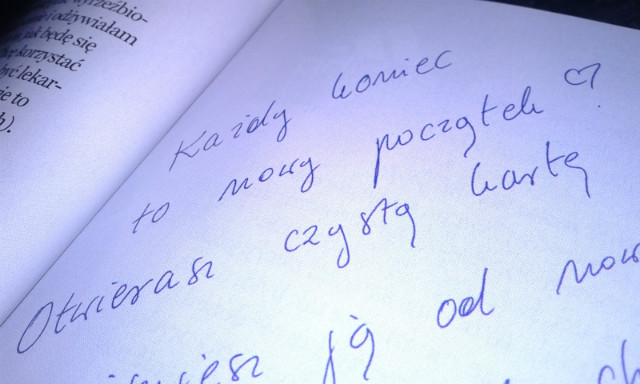 rzeźbio-
i odżywiałam
jak będę się
korzystać
być lekar-
je to
).
Każdy koniec
to nowy początek ♡
Otwierasz czystą kartę
ją od now